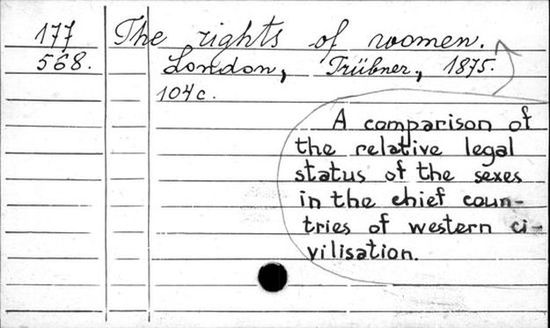 177 The rights of women.
568. London, Trübner, 1875.
104 c.
A comparison of
the relative legal
status of the sexes
in the chief coun-
tries of western ci-
vilisation.